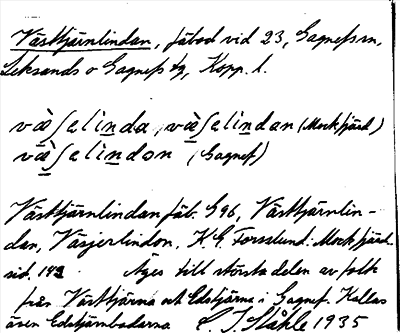 Västtjärnlindan, fäbod vid 23, Gagnefs sn,
Leksands o Gagnefs tg, Kopp. l.
væ̀ʃalìnda, væ̀ʃalìndan (Mockfjärd)
væ̀ʃalìndon (Gagnef)
Västtjärnlindan fäb. G96, Västtjärnlin-
dan, Väsjerlindon, K G Forsslund: Mockfjärd.
sid. 142 Äges till största delen av folk
från Västtjärna och Edstjärna i Gagnef. Kallas
även Edstjärnbodarna C. I. Ståhle 1935